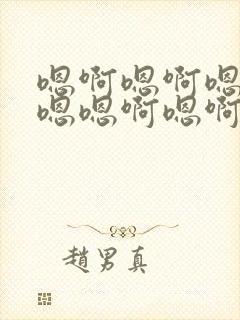 嗯啊嗯啊嗯
嗯嗯啊嗯啊
趙男真